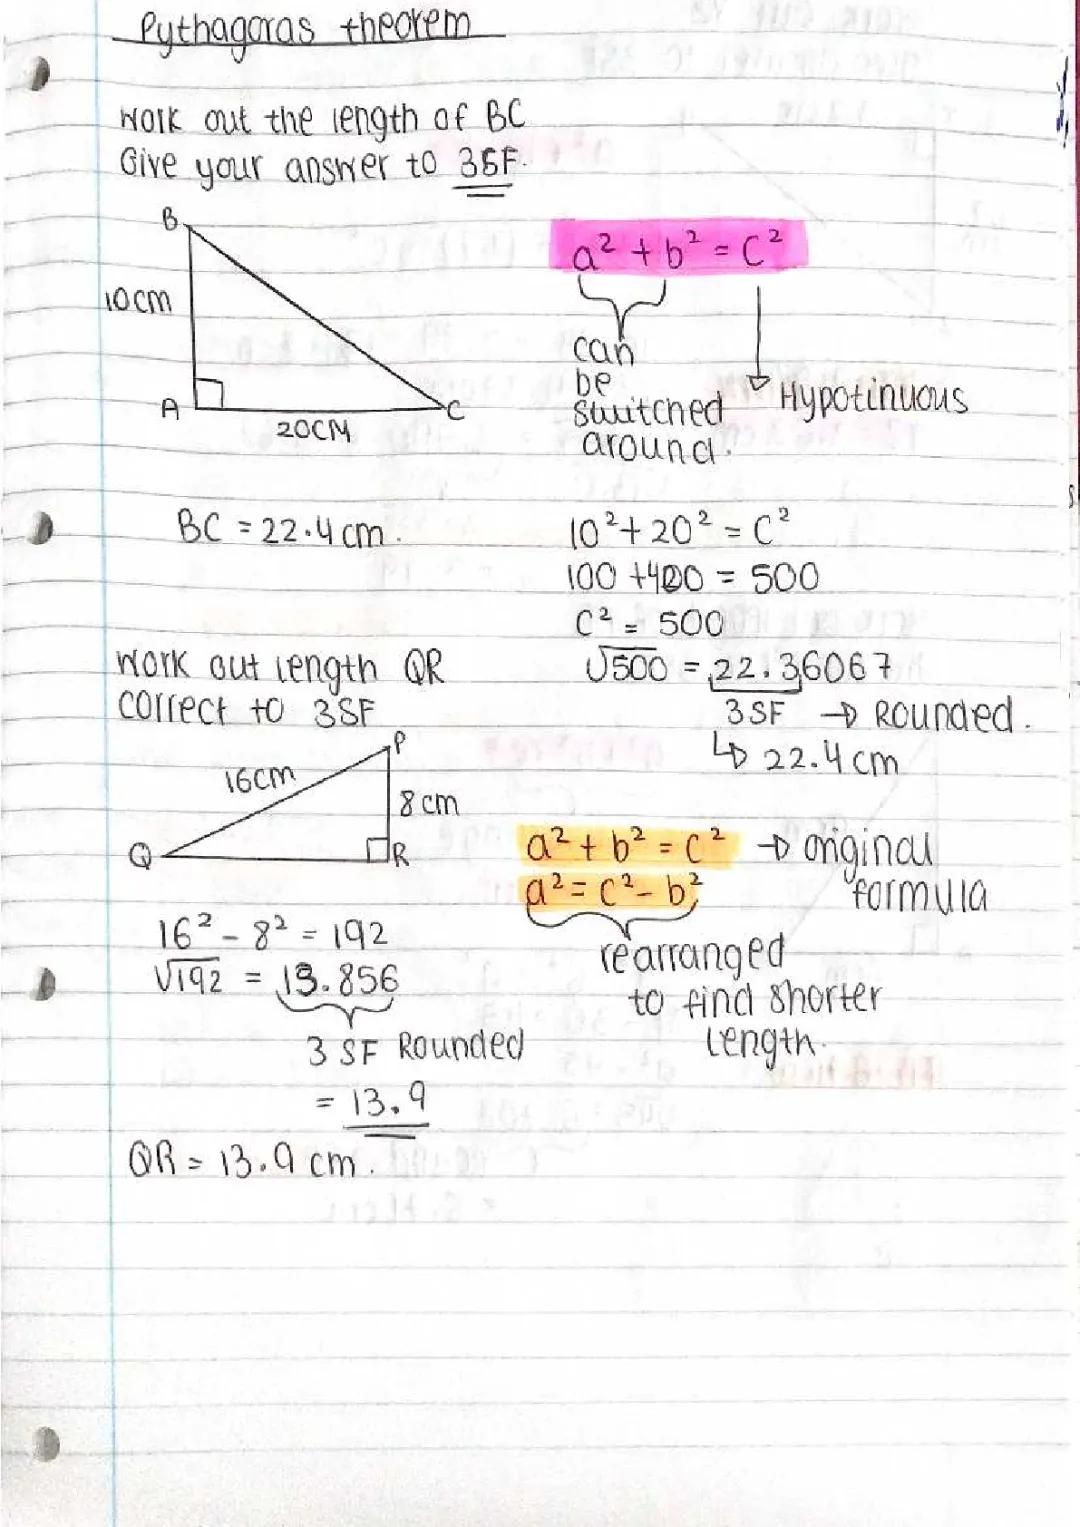 Pythagoras theorem
Work out the length of BC
Give your answer to 3SF.
B
10cm
A
20CM
C
a² + b² = c²
can
be
switched
around.
Hypotinuous
BC = 22.4 cm.
10² + 20² = C²
100 + 400 = 500
C² = 500
√500 = 22.36067
3SF → Rounded.
↳ 22.4 cm
Work out length QR
correct to 3SF
P
16cm
8cm
Q
R
a² + b² = c² → original
formula
a² = c² - b²
rearranged
to find shorter
length.
16² - 8² = 192
√192 = 13.856
3 SF Rounded
= 13.9
QR = 13.9 cm.